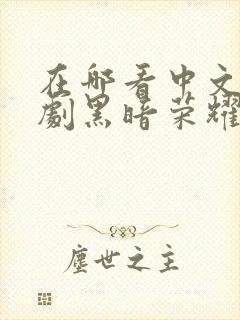 在那看中文
劇黑暗荣耀
塵世之主